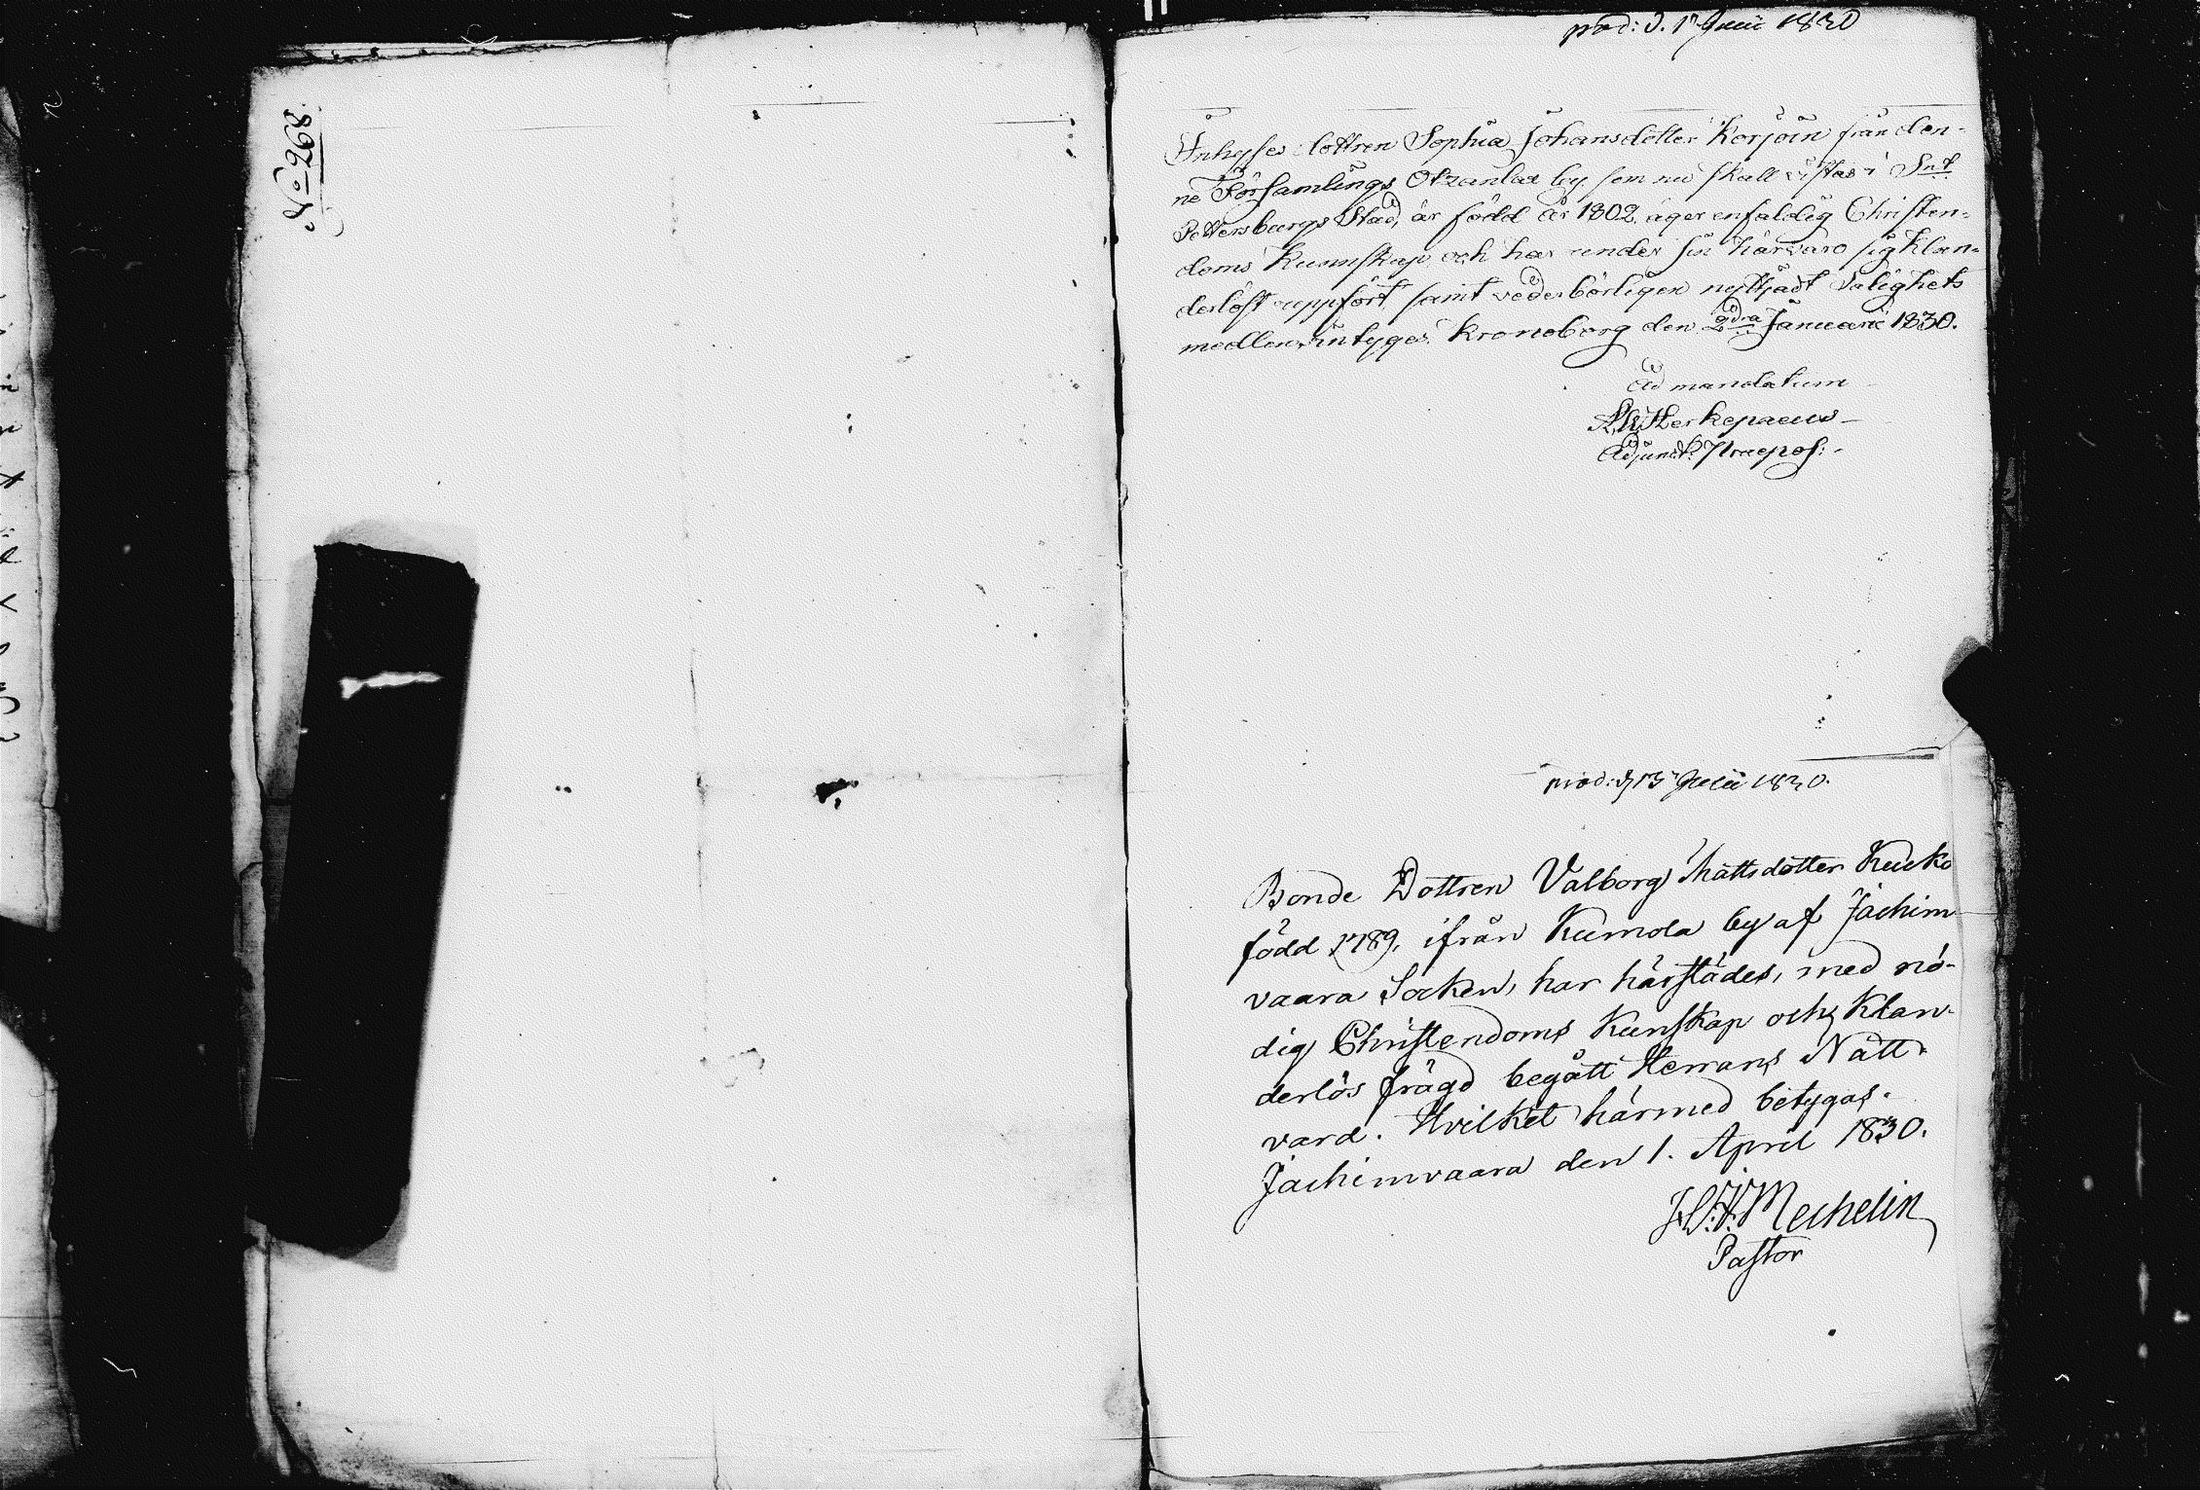 No 268.
prod: d. 17 Junii 1830
Inhyses dottren Sophia Johansdotter Korjoin från den-
ne Församlings Otzanlax by som nu skall vistas i Snt
Pettersburgs Stad, är född år 1802, äger enfaldig Christen-
doms kunnskap och har under sin härvaro sig klan-
derlöst uppfört, samt vederbörligen nyttjadt Salighets
medlen, intygas. Kronoborg den 2dra Januarii 1830.
Ad mandatum
Adjunct: Praepos:
prod: d. Julii 1830.
Bonde Dottren Valborg Mattsdotter Kucko
född 1789, ifrån Kumola by af Jachim
vaara Socken, har härstädes, med nö-
dig Christendoms Kunskap och Klan-
derlös frägd begått Herrans Natt-
vard. Hvilket härmed betygas.
Jachimvaara den 1. April 1830.
Mechelin
Pastor